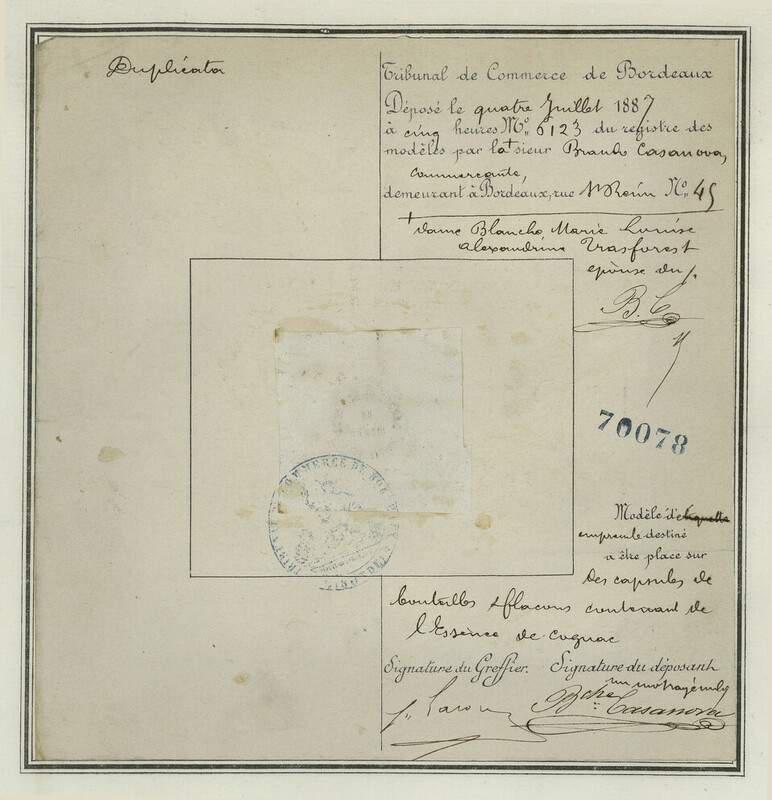 Duplicata
Tribunal de Commerce de Bordeaux
Déposé le quatre Juillet 1887
à cinq heures No. 6123 du registre des
modèles par la + sieur Casanova,
commerçante,
demeurant à Bordeaux, rue No. 45
+ dame Blanche Marie Louise
Alexandrine Trasforest
épouse du s.
B. C
70078
Modèle d'étiquette
empreinte destiné
à être place sur
des capsules de
bouteilles & flacons contenant de
l'Essence de cognac
Signature du Greffier. Signature du déposant
un mot rayé nul
Bche Casanova